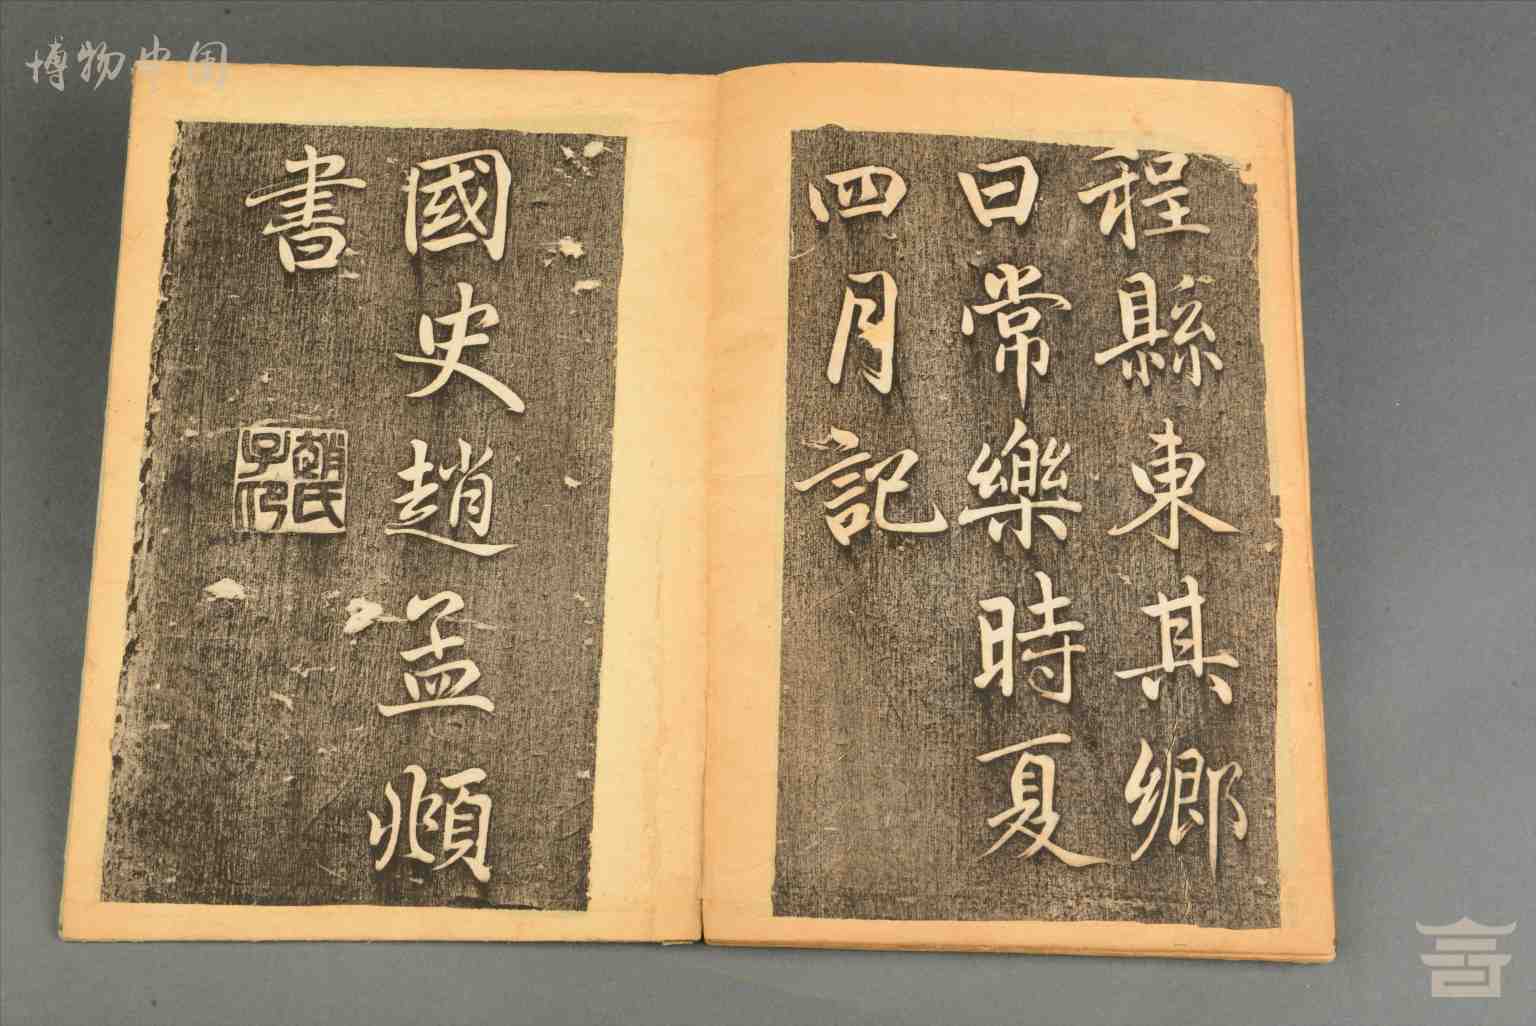 博物中国
程縣東其鄉
曰常樂時夏
四月記
國史趙孟頫
書
趙氏子昂